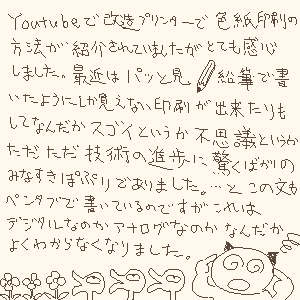 Youtubeで改造プリンターで色紙印刷の
方法が紹介されていましたがとても感心
しました。最近はパッと見 鉛筆で書
いたようにしか見えない印刷が出来たりも
してなんだかスゴイというか不思議というか
ただただ技術の進歩に驚くばかりの
みなすきぽぷりでありました。…と、この文も
ペンタブで書いているのですがこれは
デジタルなのかアナログなのかなんだか
よくわからなくなりました。